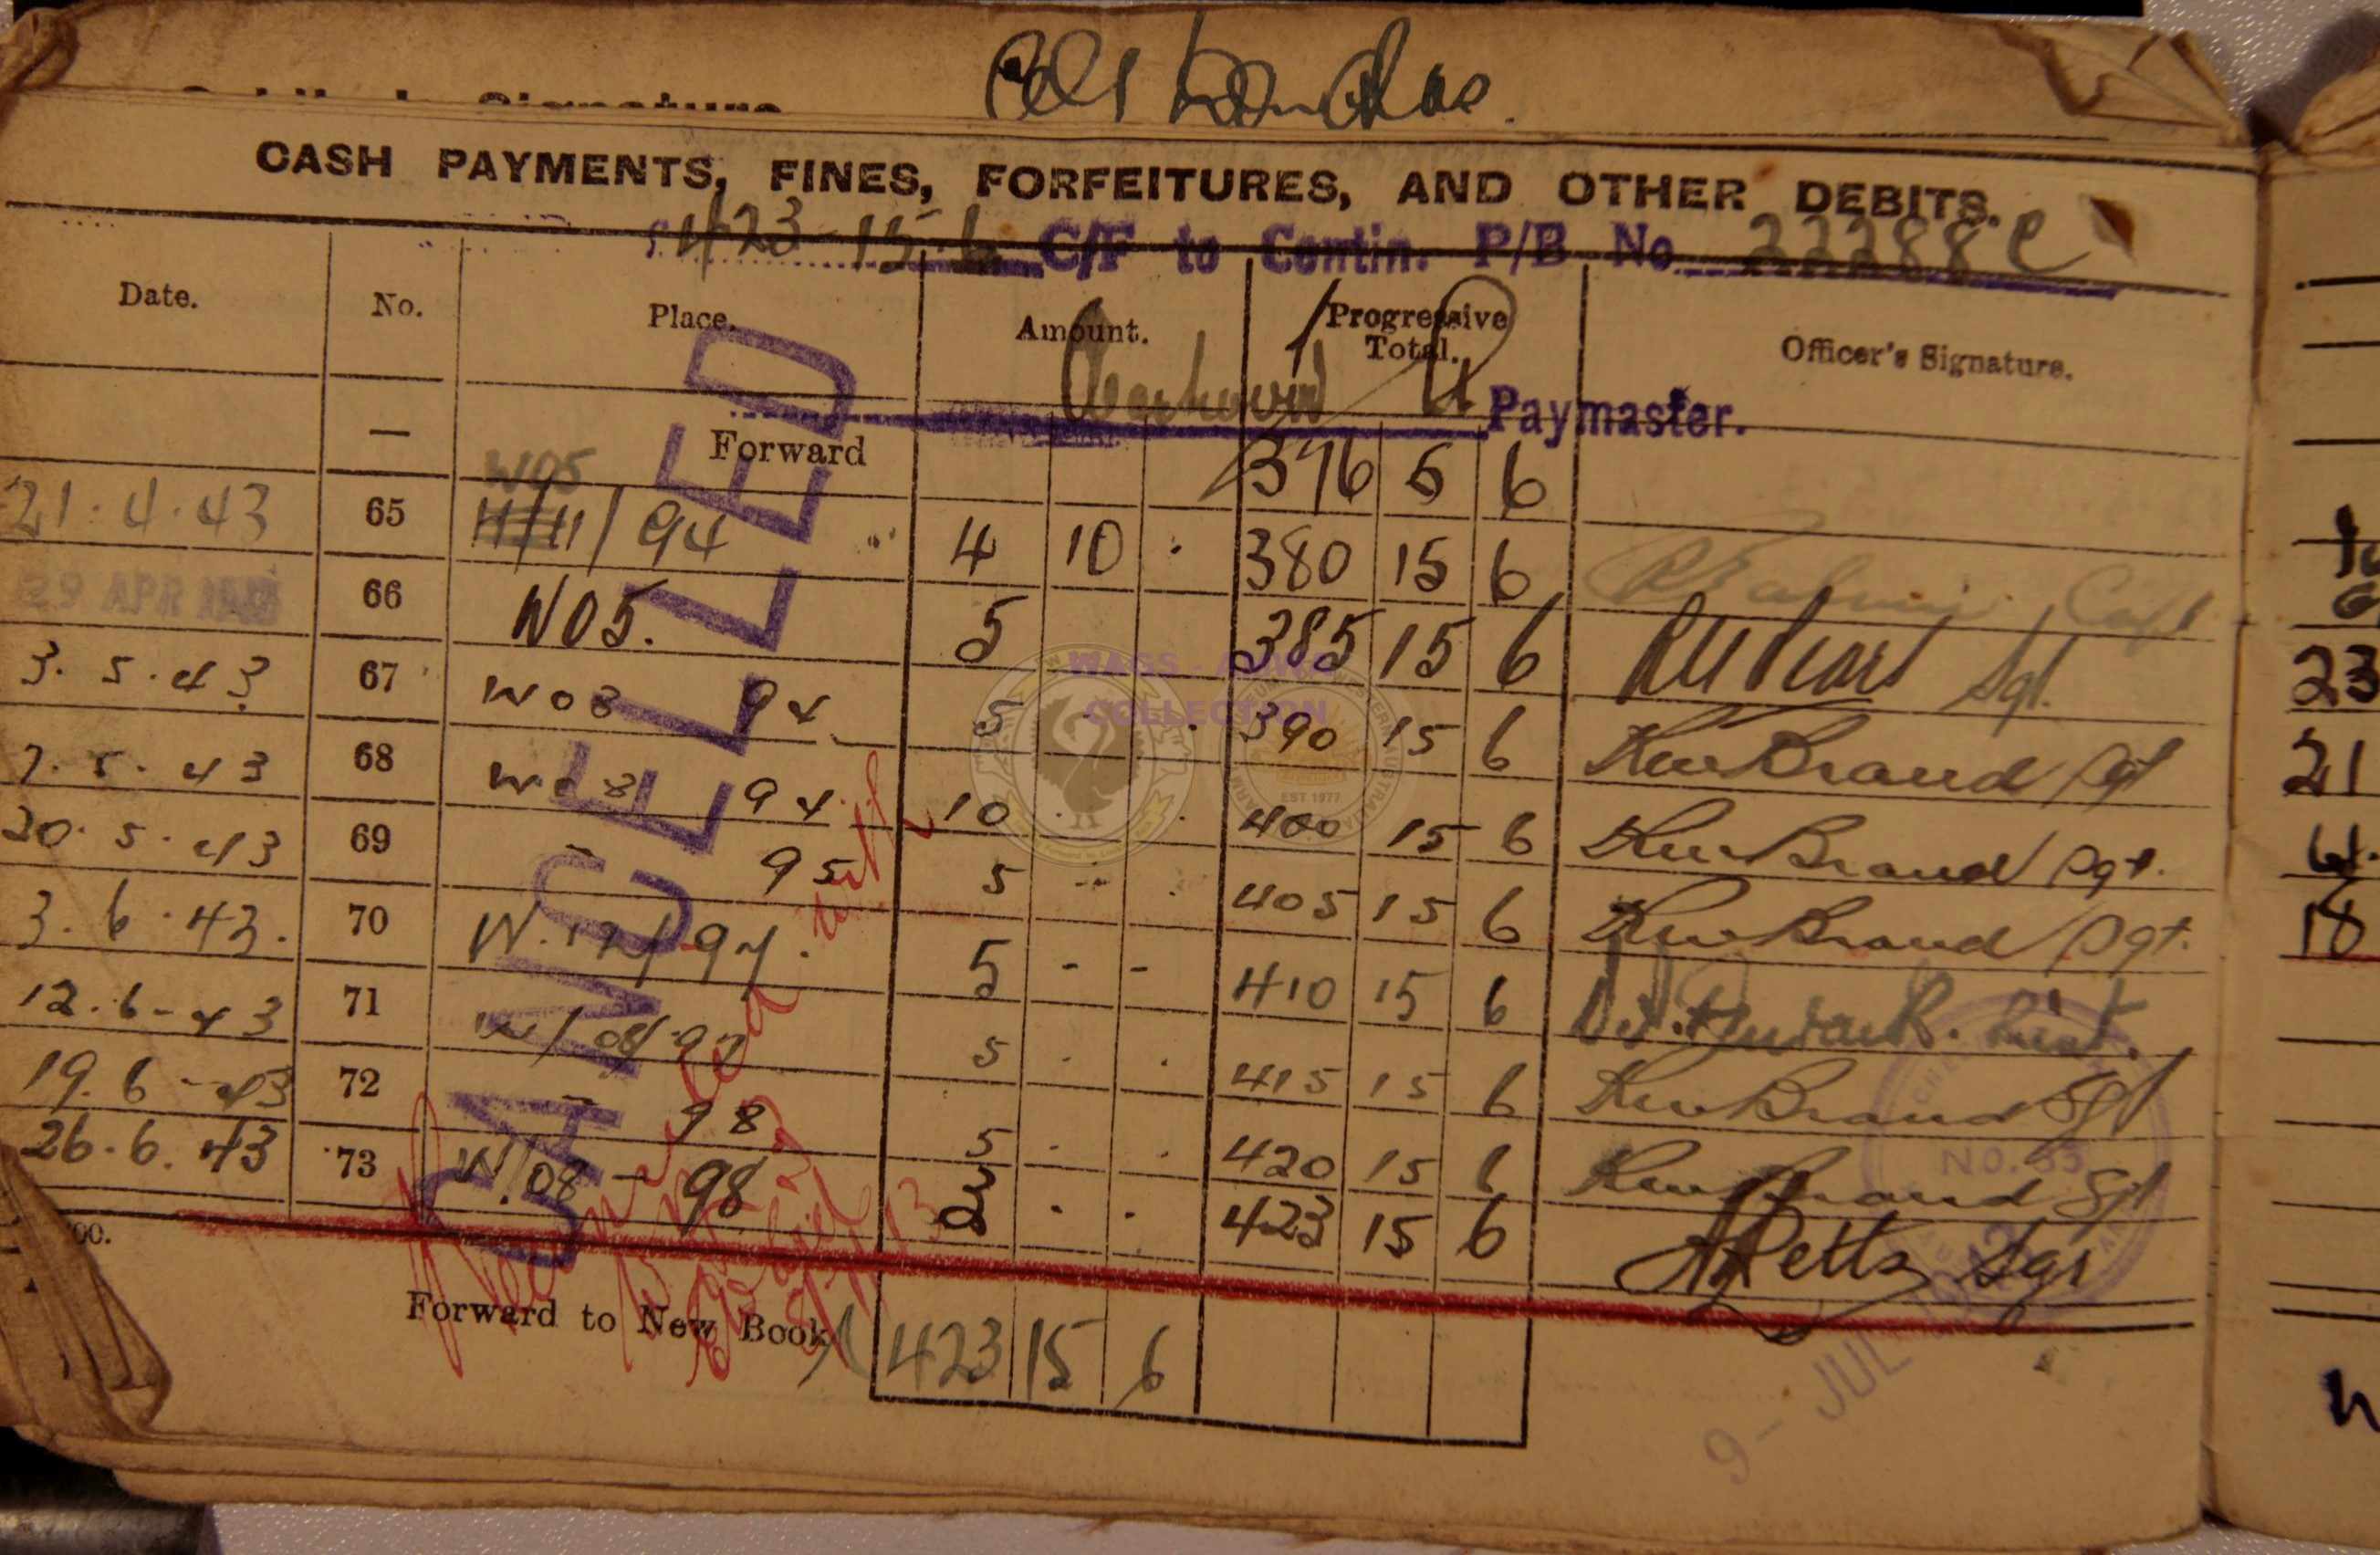 CASH PAYMENTS, FINES, FORFEITURES, AND OTHER DEBITS.
£423-15-6 C/F to Contin. P/B No 22288 C
Date. No. Place. Amount. Progressive Total. Officer's Signature.
Paymaster.
— Forward 376 5 6
W05
21.4.43 65 94 4 10 . 380 15 6 Capt
29 APR 1943 66 W05. 5 385 15 6 Sgt.
3.5.43 67 W08 94 5 . 390 15 6 Ken Brand Sgt
7.5.43 68 W08 94 10 . . 400 15 6 Ken Brand Sgt.
20.5.43 69 - 95 5 - . 405 15 6 Ken Brand Sgt.
3.6.43. 70 W.12/97. 5 - - 410 15 6 Lieut.
12.6-43 71 W/08/97 5 . . 415 15 6 Ken Brand Sgt
19.6-43 72 - 98 5 . . 420 15 6 Ken Brand Sgt
26.6.43 73 W.08 - 98 3 . . 423 15 6 Petts Sgt
CANCELLED
Forward to New Book 423 15 6
NO. 33
9 - JUL 1943
WAGS - AHMS
COLLECTION
EST 1977
23
21
18